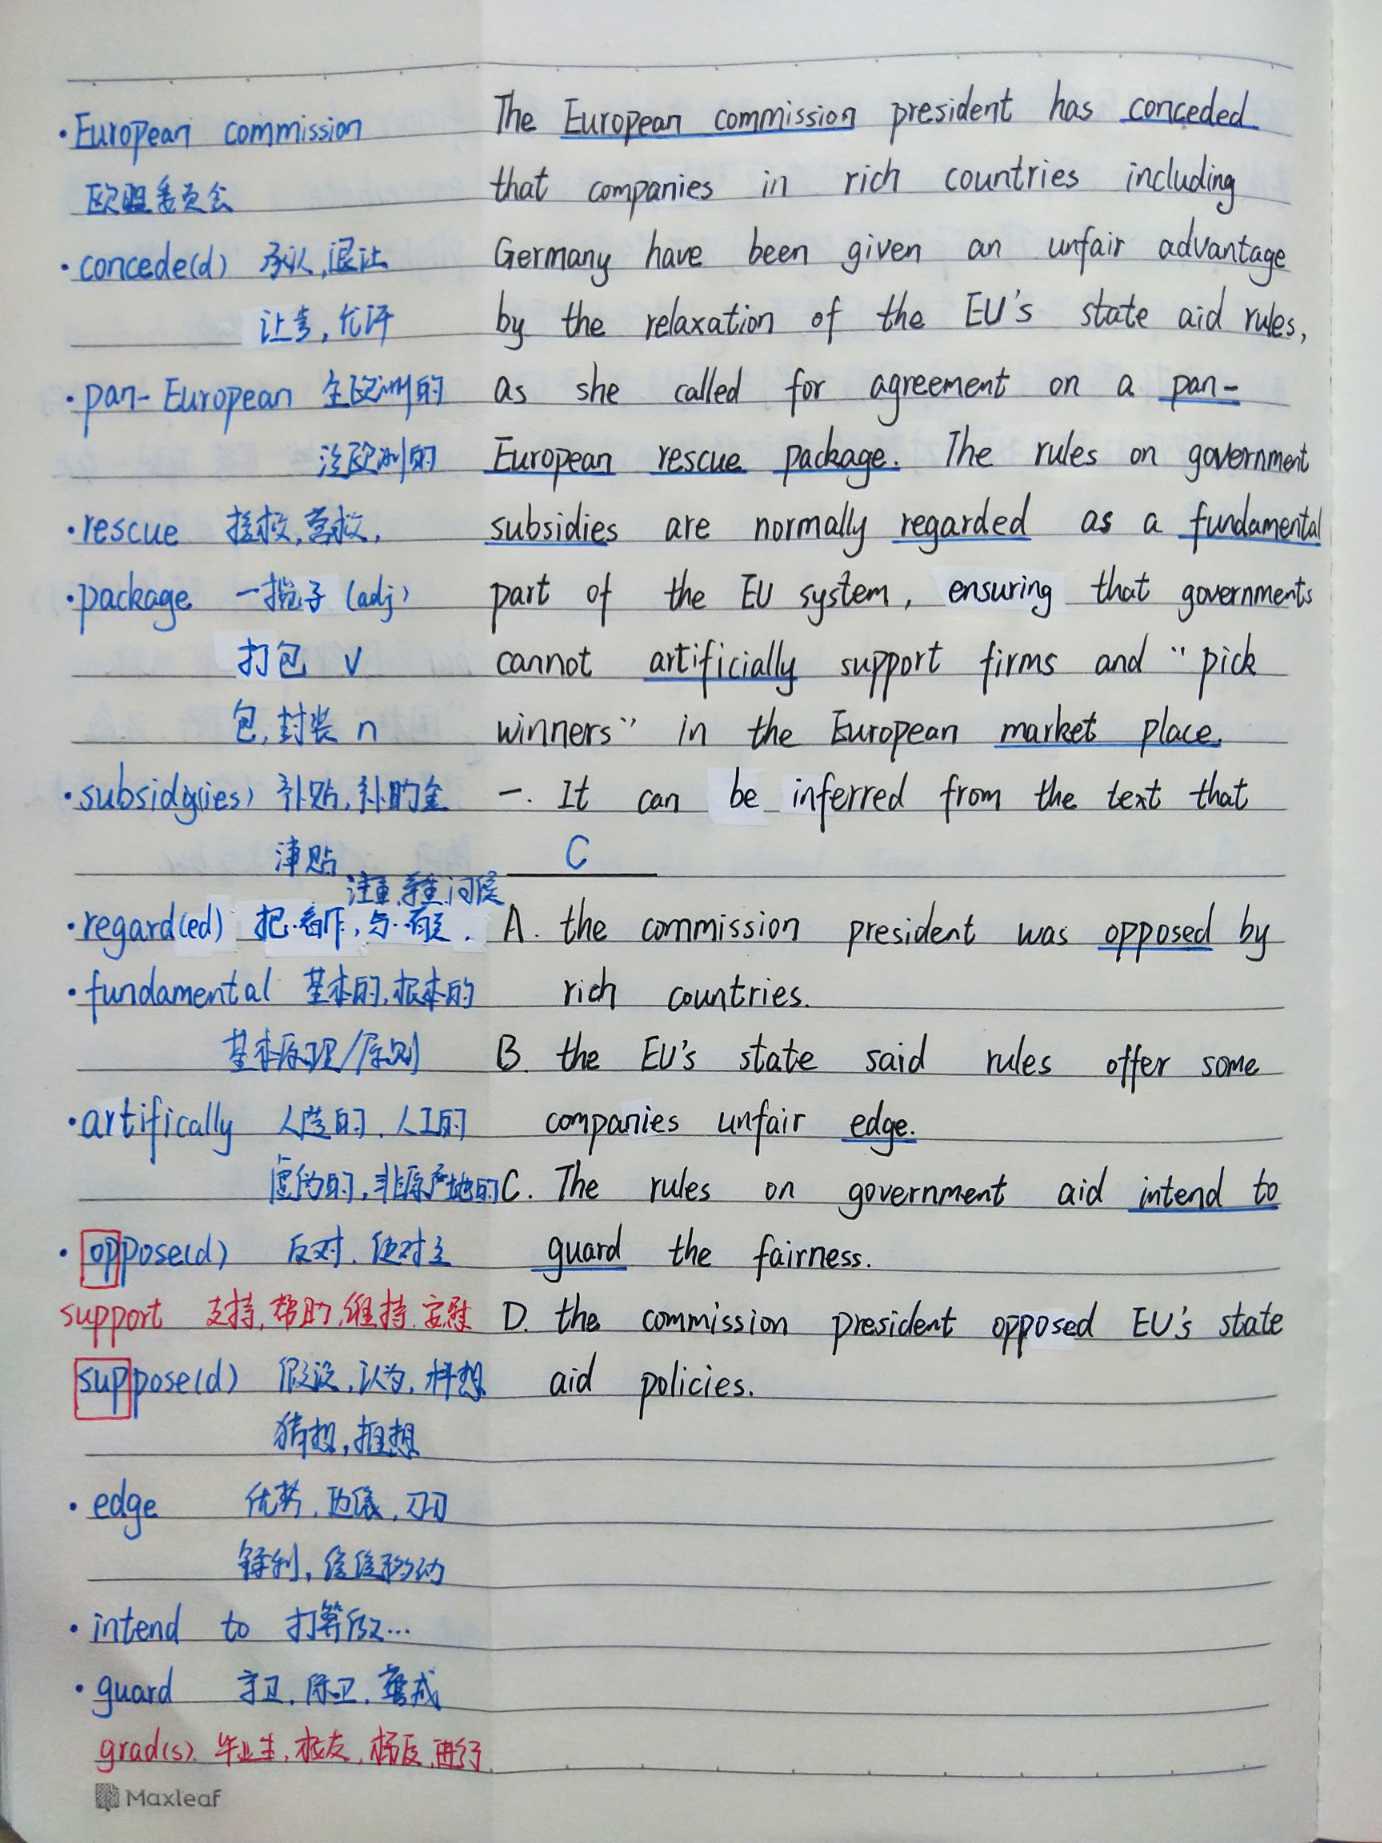 · European commission
欧盟委员会
· concede(d) 承认,退让
让步,允许
· pan-European 全欧洲的
泛欧洲的
· rescue 援救,营救,
· package 一揽子 (adj)
打包 v
包,封装 n
· subsidy(ies) 补贴,补助金
津贴
注重,尊重,问候
· regard(ed) 把..看作,与..有关.
· fundamental 基本的,根本的
基本原理/原则
· artifically 人造的,人工的
虚伪的,非原产地的
· oppose(d) 反对,使对立
support 支持,帮助,维持,安慰
suppose(d) 假设,认为,料想
猜想,推想
· edge 优势,边缘,刀刃
锋利,徐徐移动
· intend to 打算做...
· guard 守卫,保卫,警戒
grad(s). 毕业生,校友
Maxleaf
The European commission president has conceded
that companies in rich countries including
Germany have been given an unfair advantage
by the relaxation of the EU's state aid rules,
as she called for agreement on a pan-
European rescue package. The rules on government
subsidies are normally regarded as a fundamental
part of the EU system, ensuring that governments
cannot artificially support firms and "pick
winners" in the European market place.
一. It can be inferred from the text that
C
A. the commission president was opposed by
rich countries.
B. the EU's state said rules offer some
companies unfair edge.
C. The rules on government aid intend to
guard the fairness.
D. the commission president opposed EU's state
aid policies.